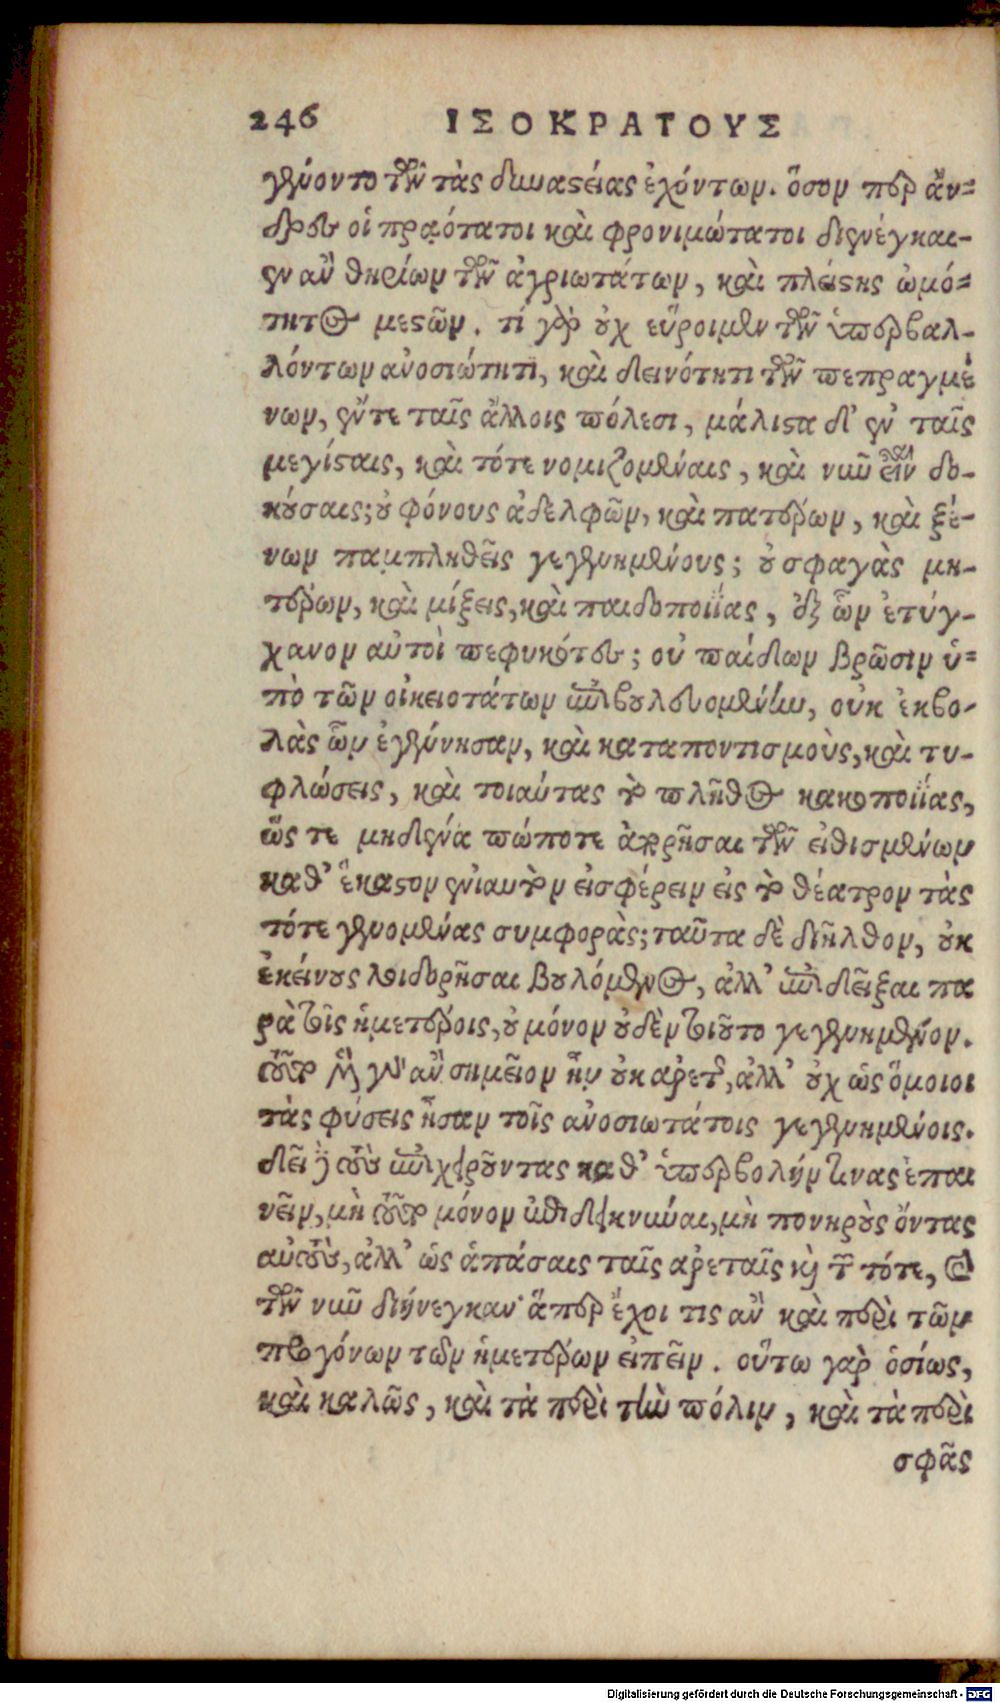 246 ΙΣΟΚΡΑΤΟΥΣ
γένοντο τῶν τὰς δυναστείας ἐχόντων. ὅσον περ ἄν-
δρες οἱ πραότατοι καὶ φρονιμώτατοι διενέγκαι-
εν ἂν θηρίων τῶν ἀγριωτάτων, καὶ πλείστης ὠμό-
τητος μεστῶν. τί γὰρ οὐχ εὕροιμεν τῶν ὑπερβαλ-
λόντων ἀνοσιώτητι, καὶ δεινότητι τῶν πεπραγμέ
νων, ἔν τε ταῖς ἄλλοις πόλεσι, μάλιστα δ' ἐν ταῖς
μεγίσταις, καὶ τότε νομιζομέναις, καὶ νῦν εἶναι δο-
κούσαις; οὐ φόνους ἀδελφῶν, καὶ πατέρων, καὶ ξέ-
νων παμπληθεῖς γεγενημένους; οὐ σφαγὰς μη-
τέρων, καὶ μίξεις, καὶ παιδοποιΐας, ἐξ ὧν ἐτύγ-
χανον αὐτοὶ πεφυκότες; οὐ παίδων βρῶσιν ὑ-
πὸ τῶν οἰκειοτάτων ἐπιβουλευομένην, οὐκ ἐκβο-
λὰς ὧν ἐγέννησαν, καὶ καταποντισμοὺς, καὶ τυ-
φλώσεις, καὶ τοιαύτας τὸ πλῆθος κακοποιΐας,
ὥς τε μηδένα πώποτε ἀπορῆσαι τῶν εἰθισμένων
καθ' ἕκαστον ἐνιαυτὸν εἰσφέρειν εἰς τὸ θέατρον τὰς
τότε γενομένας συμφορὰς; ταῦτα δὲ διῆλθον, οὐκ
ἐκείνους λοιδορῆσαι βουλόμενος, ἀλλ' ἐπιδεῖξαι πα
ρὰ τοῖς ἡμετέροις, οὐ μόνον οὐδὲν τοιοῦτο γεγενημένον.
τοῦτο μὲν γὰρ ἂν σημεῖον ἦν οὐκ ἀρετῆς, ἀλλ' οὐχ ὡς ὅμοιοι
τὰς φύσεις ἦσαν τοῖς ἀνοσιωτάτοις γεγενημένοις.
δεῖ δὲ τοὺς ἐπιχειροῦντας καθ' ὑπερβολήν τινας ἐπαι
νεῖν, μὴ τοῦτο μόνον ἐπιδεικνύναι, μὴ πονηροὺς ὄντας
αὐτοὺς, ἀλλ' ὡς ἁπάσαις ταῖς ἀρεταῖς καὶ τῶν τότε, καὶ
τῶν νῦν διήνεγκαν· ἅπερ ἔχοι τις ἂν καὶ περὶ τῶν
προγόνων τῶν ἡμετέρων εἰπεῖν. οὕτω γὰρ ὁσίως,
καὶ καλῶς, καὶ τὰ περὶ τὴν πόλιν, καὶ τὰ περὶ
σφᾶς
Digitalisierung gefördert durch die Deutsche Forschungsgemeinschaft - DFG